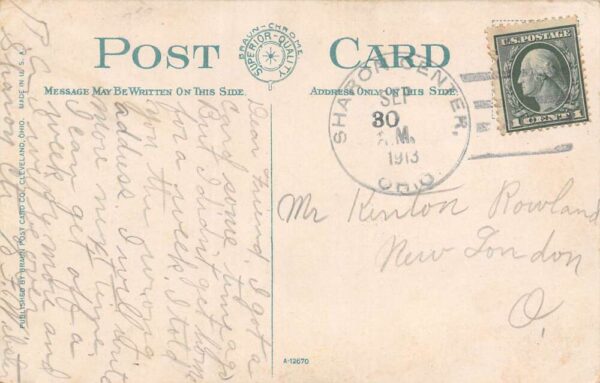 POST CARD
BRAUN-CHROME
SUPERIOR-QUALITY
MESSAGE MAY BE WRITTEN ON THIS SIDE.
ADDRESS ONLY ON THIS SIDE.
U.S. POSTAGE
1 CENT 1
SHARON CENTER,
SEP
30
A.M.
1913
OHIO
Mr Kenton Rowland
New London
O.
Dear Friend. I got a
card some time ago
But I didn't get home
for a week. I told
you the wrong
address. I will write
more next time.
I can get off a
week by more and
I will be over
P. C.
Sharon Ctr. O.
PUBLISHED BY BRAUN POST CARD CO. CLEVELAND, OHIO. MADE IN U.S.A.
A-12670